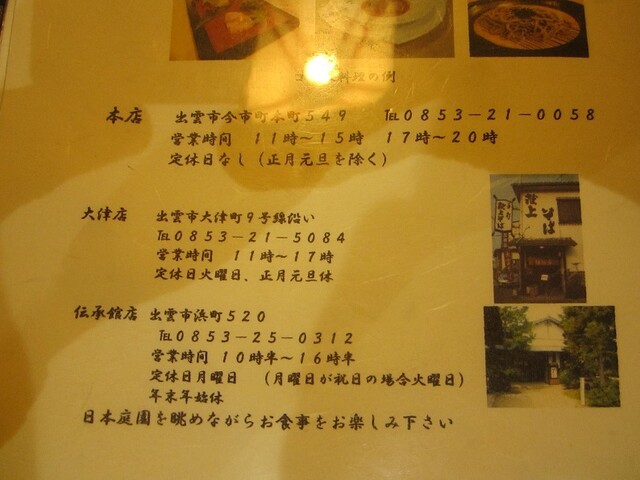 料理の例
本店 出雲市今市町本町549 ℡0853-21-0058
営業時間 11時～15時 17時～20時
定休日なし(正月元旦を除く)
大津店 出雲市大津町9号線沿い
℡0853-21-5084
営業時間 11時～17時
定休日火曜日、正月元旦休
伝承館店 出雲市浜町520
℡0853-25-0312
営業時間 10時半～16時半
定休日月曜日 (月曜日が祝日の場合火曜日)
年末年始休
日本庭園を眺めながらお食事をお楽しみ下さい
そば